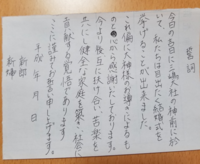 誓詞
今日の吉日に 嶋 社の神前に於
いて、私たちは目出たく結婚式を
挙げることが出来ました。
これ偏に大神様のお導きによるも
のと心から感謝いたしております。
今より後互に扶け合い、苦楽を
共にし健全な家庭を築き、社会に
貢献する覚悟であります。
ここに謹みてお誓い申し上げます。
平成 年 月 日
新郎
新婦